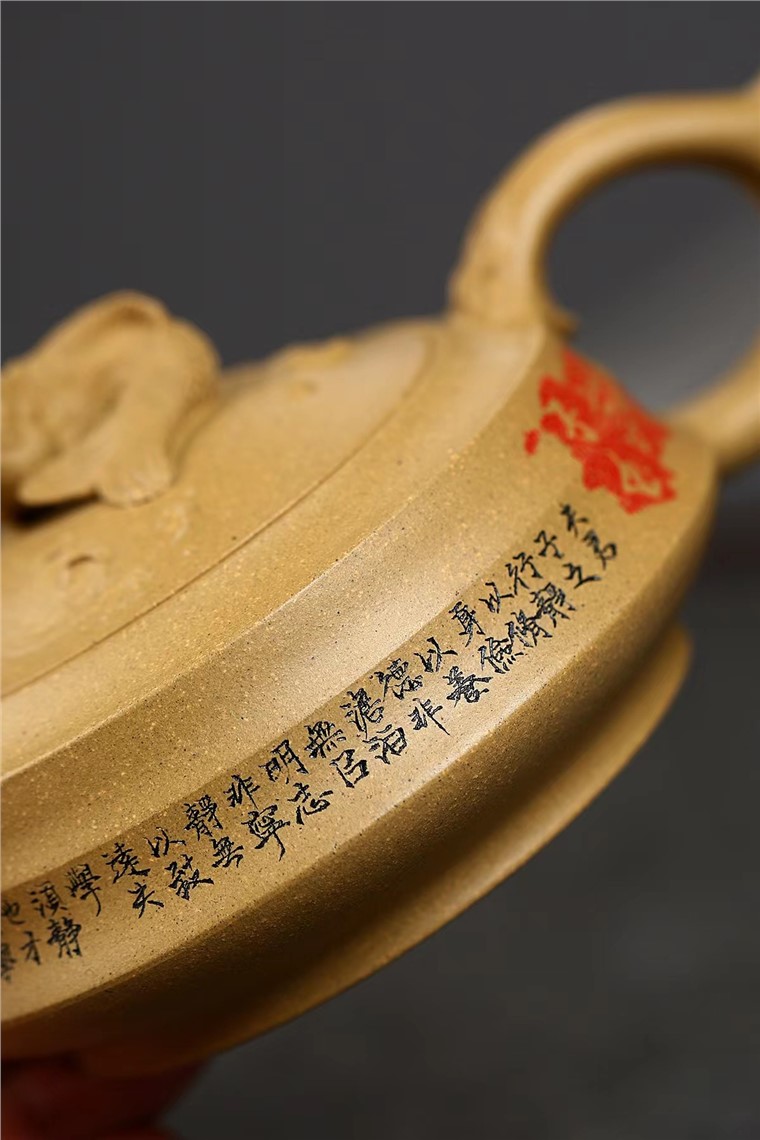 夫君
子之
行靜
以脩
身儉
以養
德非
澹泊
無㠯
明志
非寧
靜無
以致
遠夫
學
須靜
也才